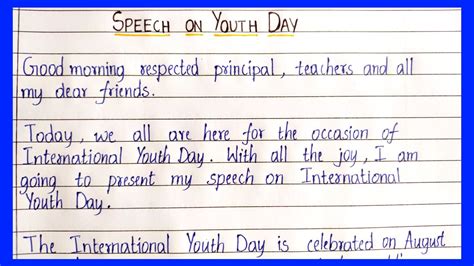 SPEECH ON YOUTH DAY
Good morning respected principal, teachers and all
my dear friends.
Today, we all are here for the occasion of
International Youth Day. With all the joy, I am
going to present my speech on International
Youth Day.
The International Youth Day is celebrated on August